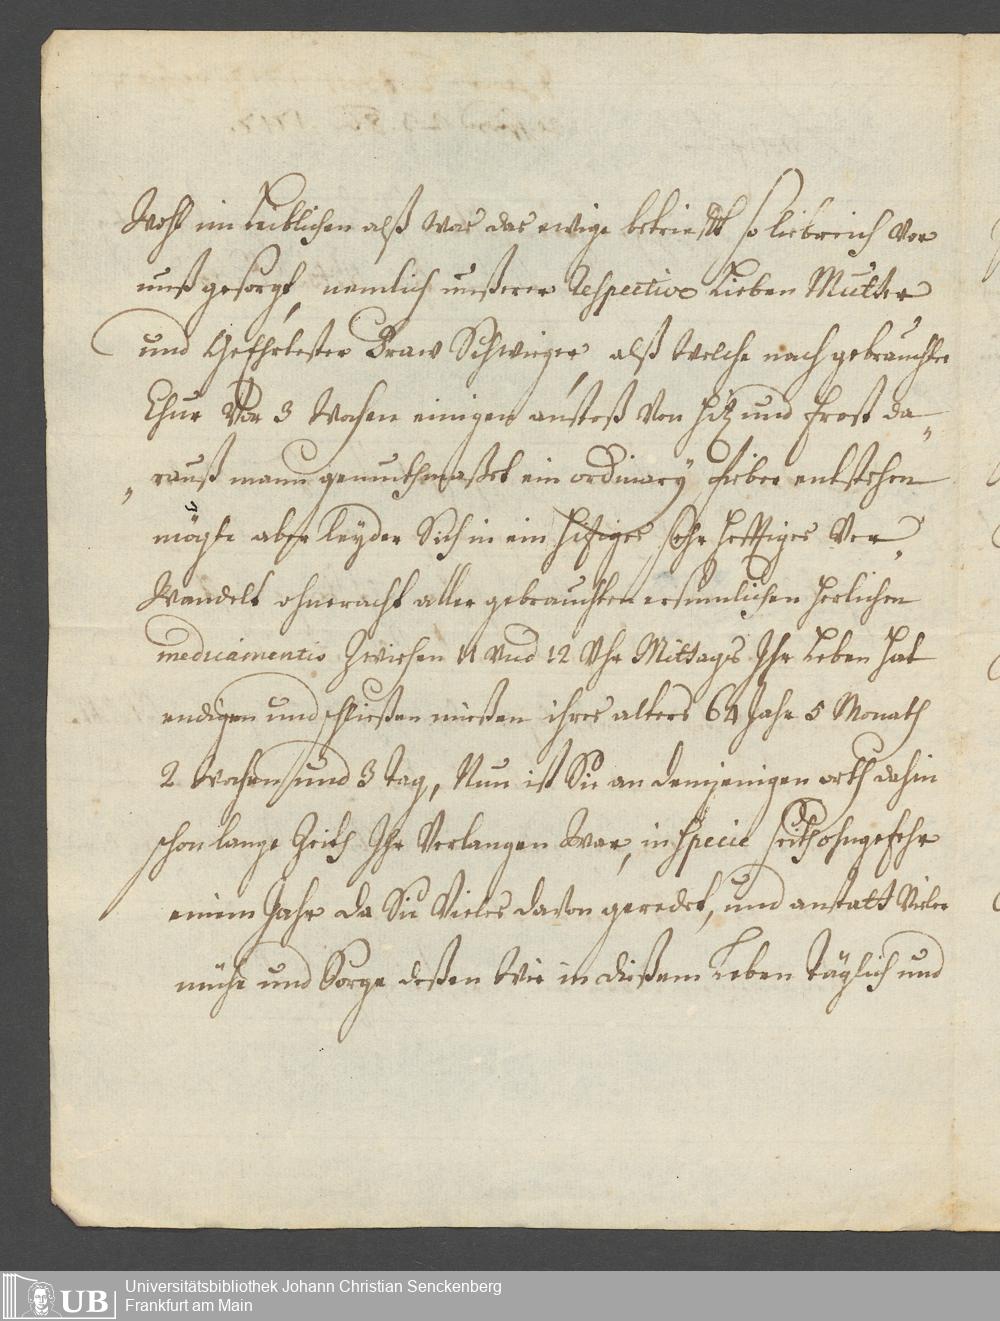 Wohl im Leiblichen alß was das ewige betriefft so liebreich vor
unß gesorgt, nemlich unßerer Respective Lieben Mutter
und Geehrtester Fraw Schwieger, alß welche nach gebrauchter
Chur Vor 3 Wochen einigen anstoß Von Hitz und Frost da„
„rauß mann gemuthmaßet ein ordinary Fieber entstehen
mögte aber leyder Sich in ein hitziges sehr hefftiges Ver„
Wandelt ohneracht aller gebrauchten ersinnlichen herlichen
medicamentis Zwischen 11 und 12 Uhr Mittags Ihr Leben hat
endigen und schließen müeßen ihres alters 64 Jahr 5 Monath
2 Wochen und 3 tag, Nun ist Sie an demjenigen orth dahin
schon lange Zeith Ihr Verlangen War, in specie seith ohngefehr
einem Jahr da Sie Vieles davon geredet, und anstatt Vieler
mühe und Sorge deßen Wir in dießem Leben täglich und
UB
Universitätsbibliothek Johann Christian Senckenberg
Frankfurt am Main